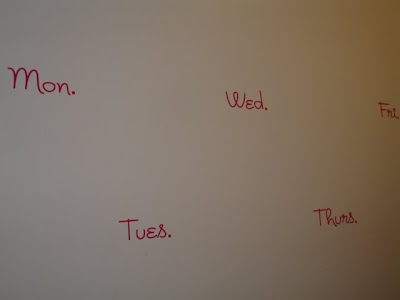 Mon.
Tues.
Wed.
Thurs.
Fri